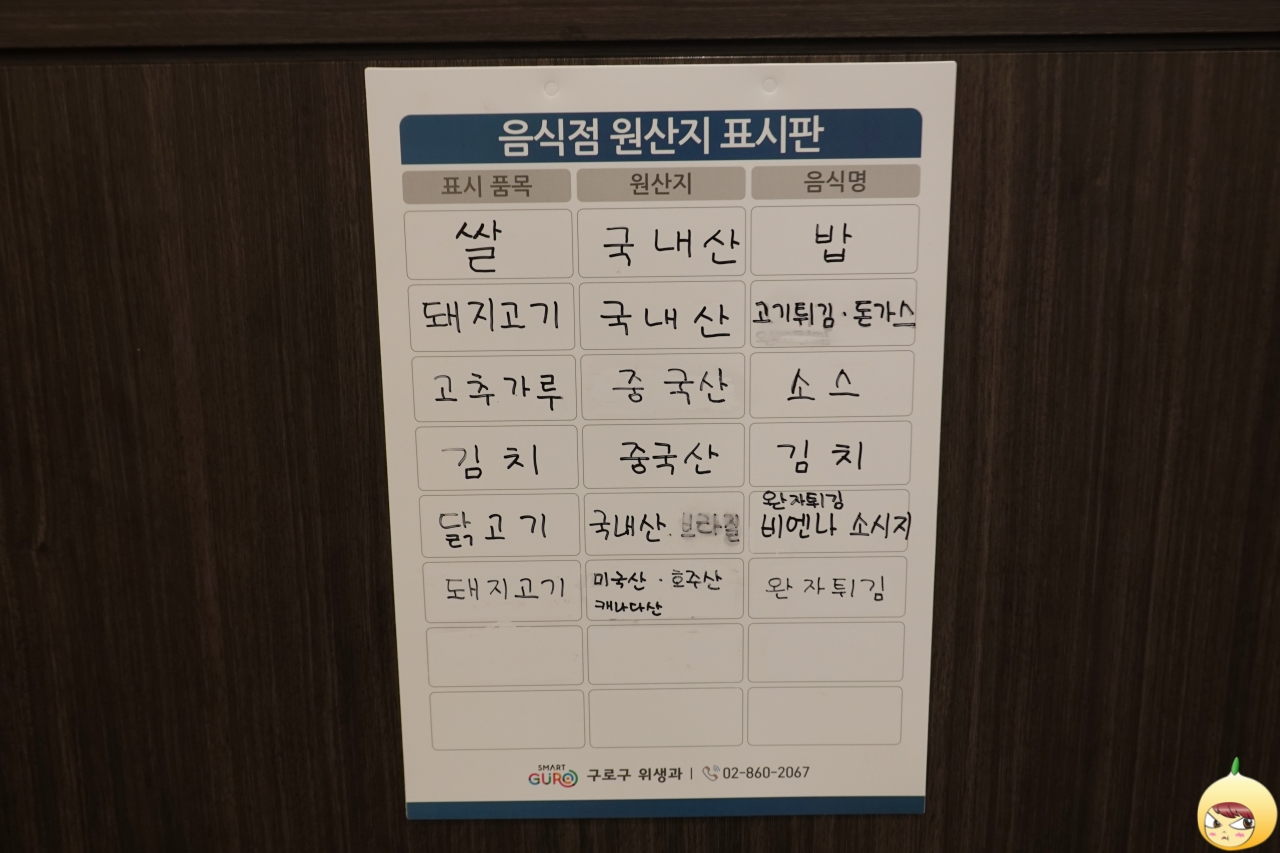 음식점 원산지 표시판
표시 품목 원산지 음식명
쌀 국내산 밥
돼지고기 국내산 고기튀김·돈가스
고추가루 중국산 소스
김치 중국산 김치
닭고기 국내산. 브라질 완자튀김
비엔나 소시지
돼지고기 미국산·호주산 완자튀김
캐나다산
SMART
GURO 구로구 위생과 | 02-860-2067